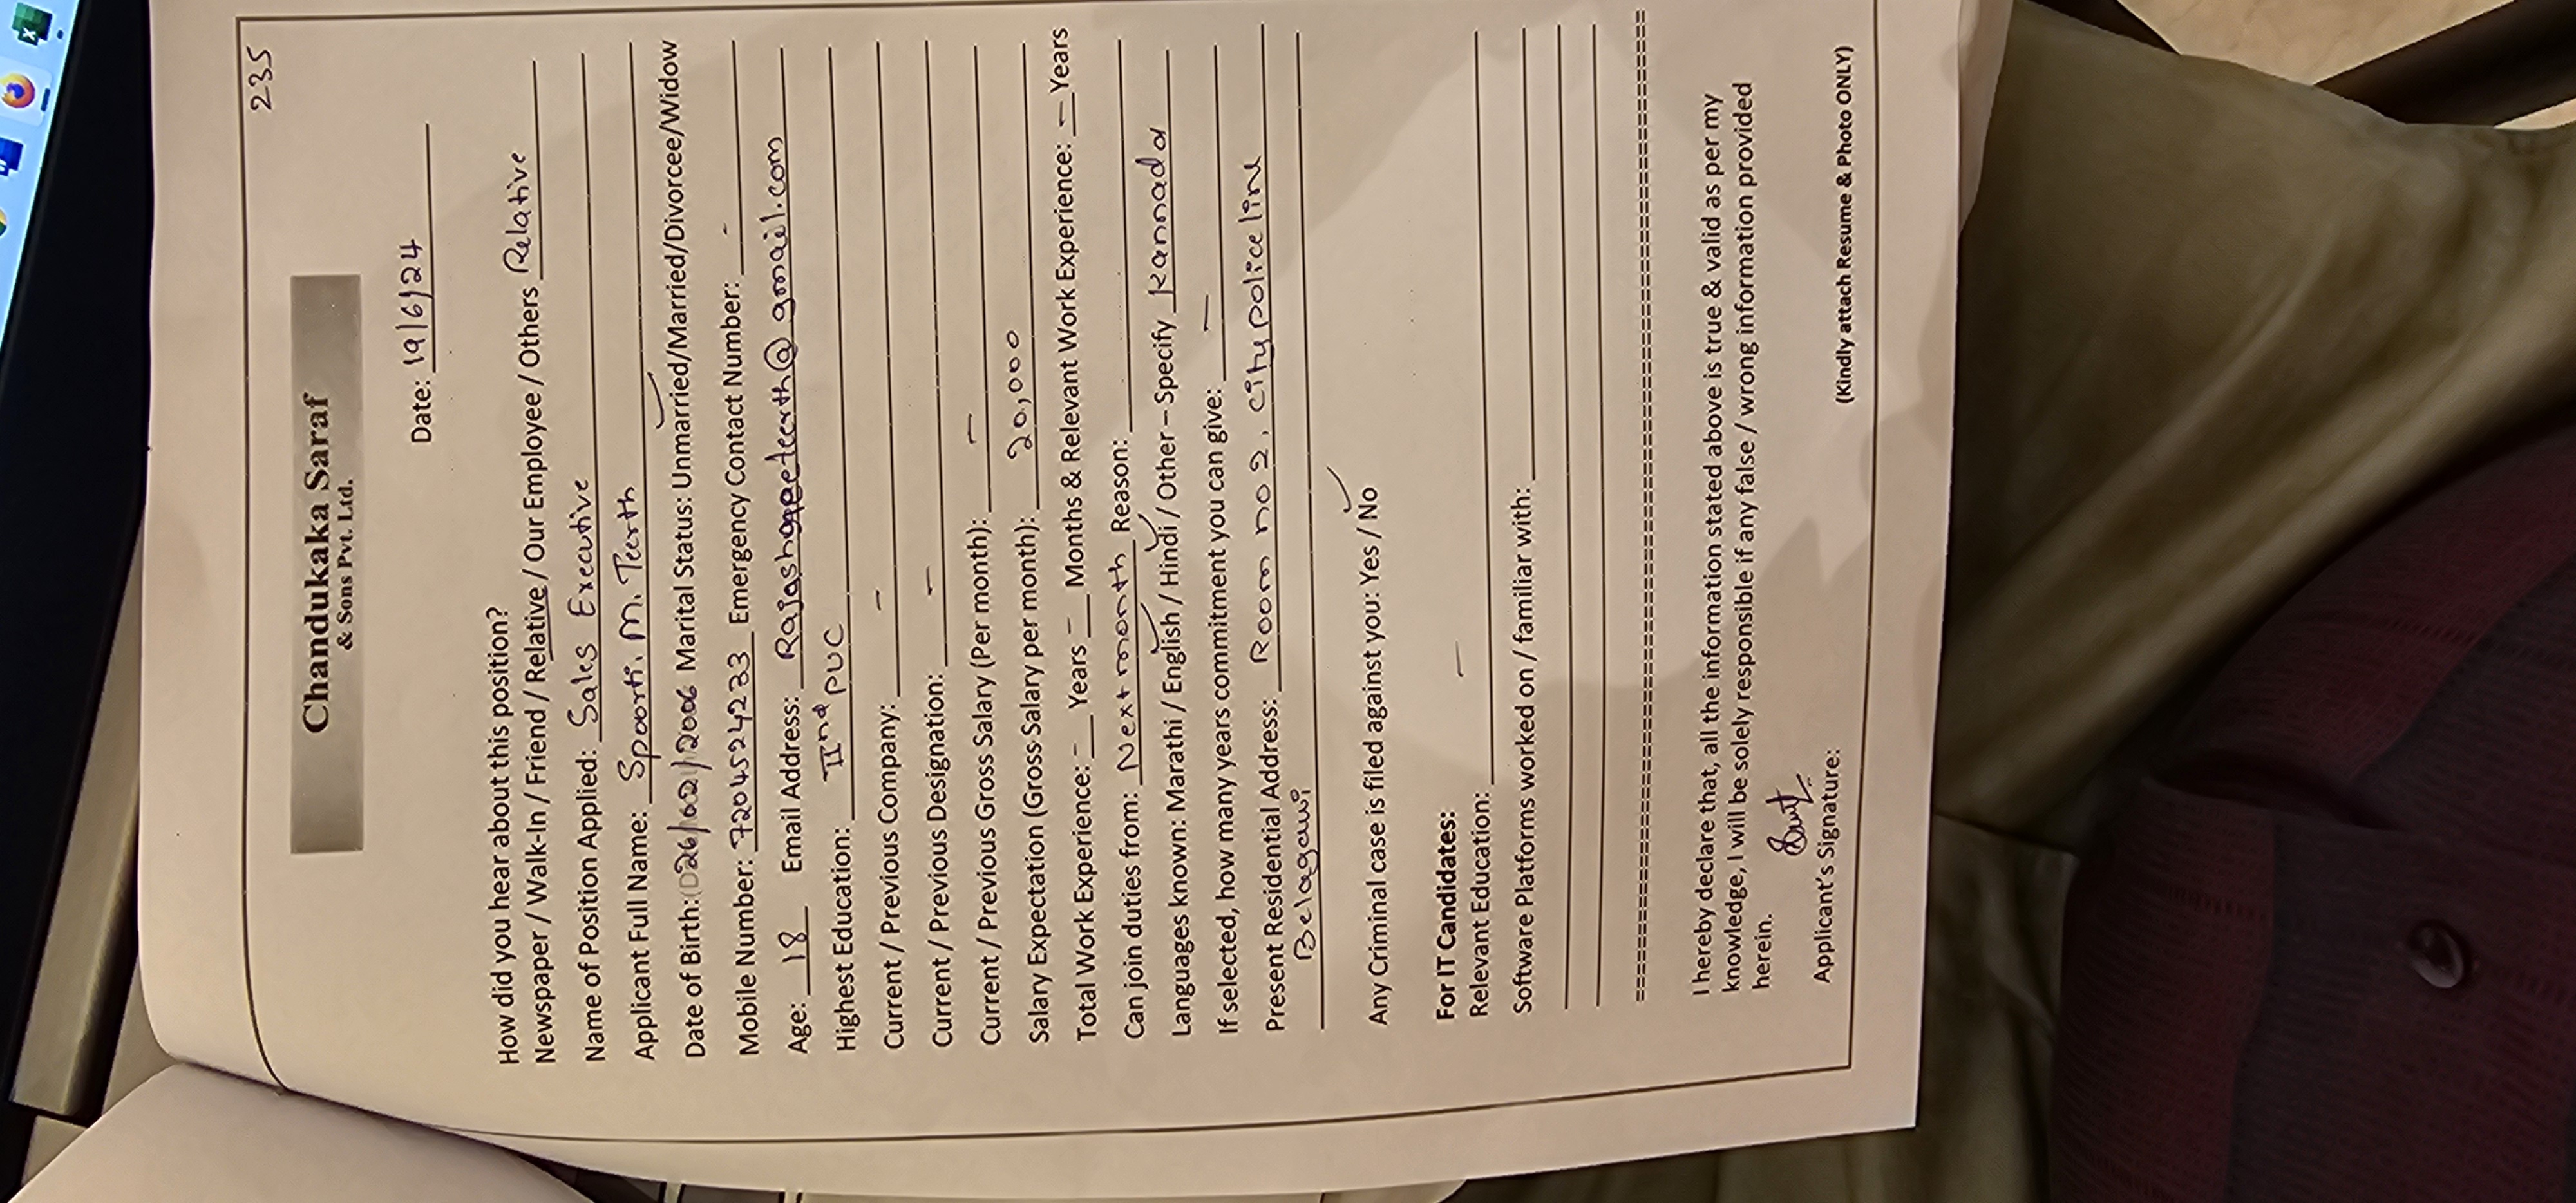 235
Chandukaka Saraf
& Sons Pvt. Ltd.
Date: 19/6/24
How did you hear about this position?
Newspaper / Walk-In / Friend / Relative / Our Employee / Others Relative
Name of Position Applied: Sales Executive
Applicant Full Name: Spoorti. M. Teerth
Date of Birth: 26/02/2006 Marital Status: Unmarried/Married/Divorcee/Widow
Mobile Number: 7204524233 Emergency Contact Number: -
Age: 18 Email Address: @gmail.com
Highest Education: IInd PUC
Current / Previous Company: -
Current / Previous Designation: -
Current / Previous Gross Salary (Per month): -
Salary Expectation (Gross Salary per month): 20,000
Total Work Experience: - Years - Months & Relevant Work Experience: - Years
Can join duties from: Next month Reason:
Languages known: Marathi / English / Hindi / Other – Specify kannada
If selected, how many years commitment you can give: -
Present Residential Address: Room no 2, city police line
Belagavi
Any Criminal case is filed against you: Yes / No
For IT Candidates:
Relevant Education: -
Software Platforms worked on / familiar with:
I hereby declare that, all the information stated above is true & valid as per my
knowledge, I will be solely responsible if any false / wrong information provided
herein.
Applicant's Signature:
(Kindly attach Resume & Photo ONLY)